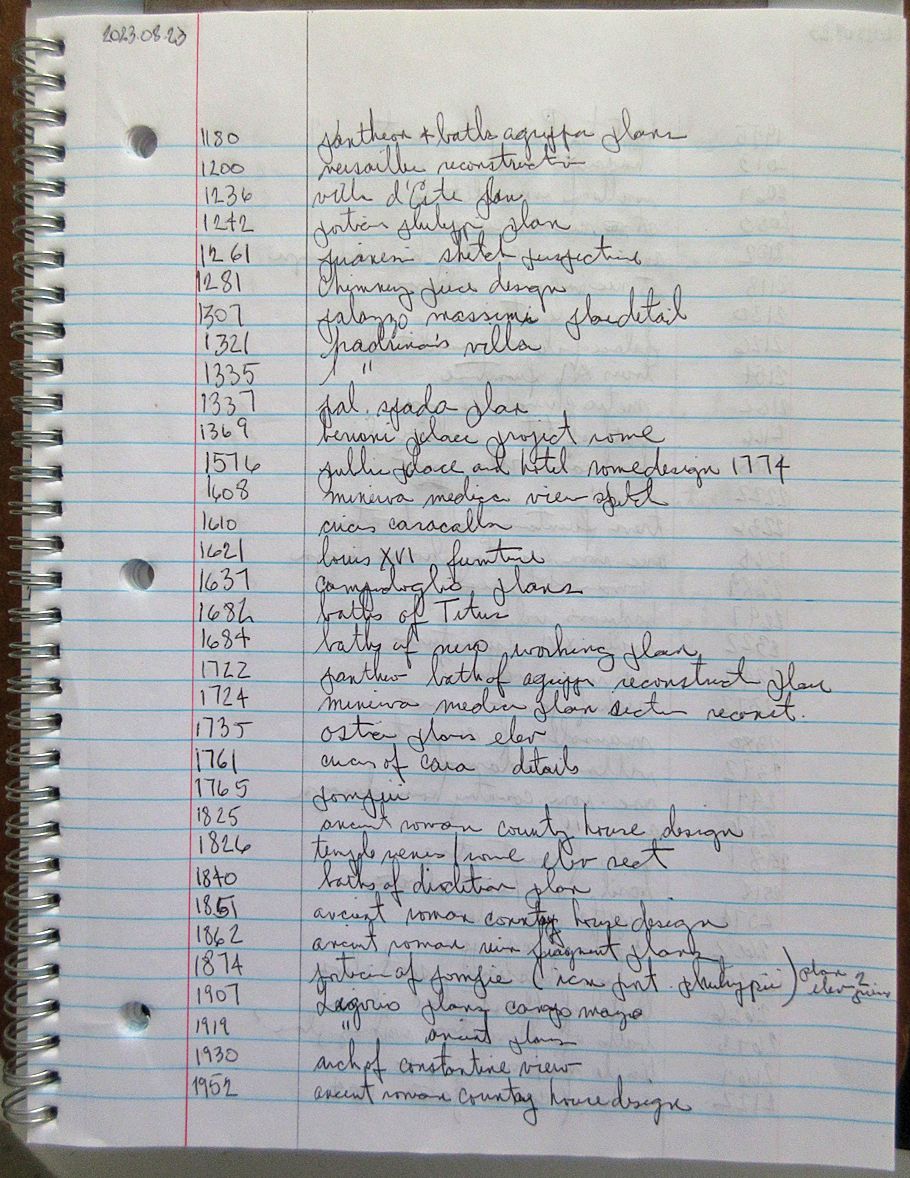 2023.08.23
1180 pantheon + baths agrippa plans
1200 versailles reconstruction
1236 villa d'Este plan
1242 plan
1261 piranesi sketch perspective
1281 chimney piece design
1307 palazzo massimi detail
1321 villa
1335 "
1337 pal. spada plan
1369 palace project rome
1576 public place and hotel rome design 1774
1608 minerva medica view
1610 circus caracalla
1621 louis XVI furniture
1637 campidoglio plans
1682 baths of Titus
1684 baths of nero working plan
1722 pantheon bath of agrippa reconstruct plan
1724 minerva medica plan section reconst.
1735 ostia plans elev
1761 circus of cara details
1765 pompeii
1825 ancient roman country house design
1826 temple venus / rome elev sect
1840 baths of diocletian plan
1851 ancient roman country house design
1862 ancient roman ruin fragment plans
1874 portico of pompeii ( ) plan
elev
1907 Ligorio plans
1919 " ancient plans
1930 arch of constantine view
1952 ancient roman country house design